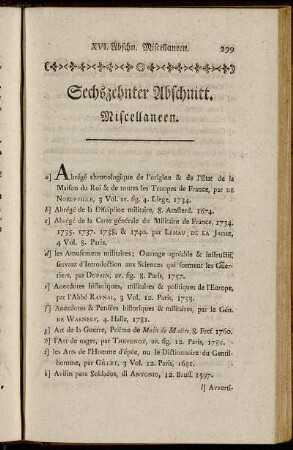 XVI. Abschn. Miscellaneen. 299
Sechszehnter Abschnitt.
Miscellaneen.
a] Abrégé chronologique de l'origine & de l'Etat de la
Maison du Roi & de toutes les Troupes de France, par DE
3 Vol. av. fig. 4. Liege, 1734.
b] Abrégé de la Discipline militaire, 8. Amsterd. 1674.
c] Abrégé de la Carte générale du Militaire de France, 1734.
1735. 1737. 1738. & 1740, par LEMAU DE LA JAISSE,
4 Vol. 8. Paris.
d] les Amusemens militaires; Ouvrage agréable & instructif,
servant d'Introduction aux Sciences qui forment les Guer-
riers, par DUPAIN, av. fig. 8. Paris, 1757.
e] Anecdotes historiques, militaires & politiques de l'Europe,
par l'Abbé RAYNAL, 3 Vol. 12. Paris, 1753.
f] Anecdotes & Pensées historiques & militaires, par le Gén.
DE WARNERY, 4. Halle, 1781.
g] Art de la Guerre, Poëme de Main de Maitre, 8. Frcf. 1760.
h] l'Art de nager, par THEVENOT, av. fig. 12. Paris, 1781.
i] les Arts de l'Homme d'épée, ou le Dictionnaire du Gentil-
homme, par GUILLET, 3 Vol. 12. Paris, 1681.
k] Avisos para Soldados, di ANTONIO, 12. Bruss. 1597.
l] Averti-